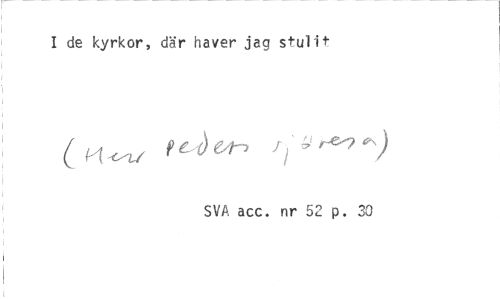 I de kyrkor, där haver jag stulit
(Herr Peders sjöresa)
SVA acc. nr 52 p. 30